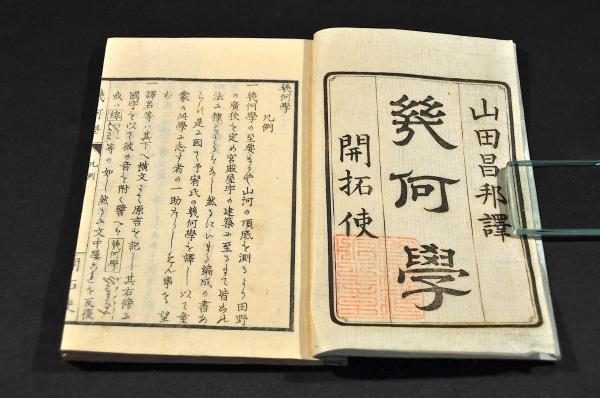 山田昌邦譯
幾何學
開拓使
幾何學
凡例
一幾何學の至要なるや山河の頂底を測るより田野
の廣狹を定め宮殿屋宇の建築に至るまて皆此
法に據らさるなし然るにいまた編成の書あ
らす是に因て予宥氏の幾何學を譯し以て童
蒙の此學に志す者の一助ならしめん事を望
む
一譯名等ハ其下へ横文にて原音を記し其右傍に
國字を以て彼の音を附く譬へは
等の如し然るに文中屢
幾何學
凡例